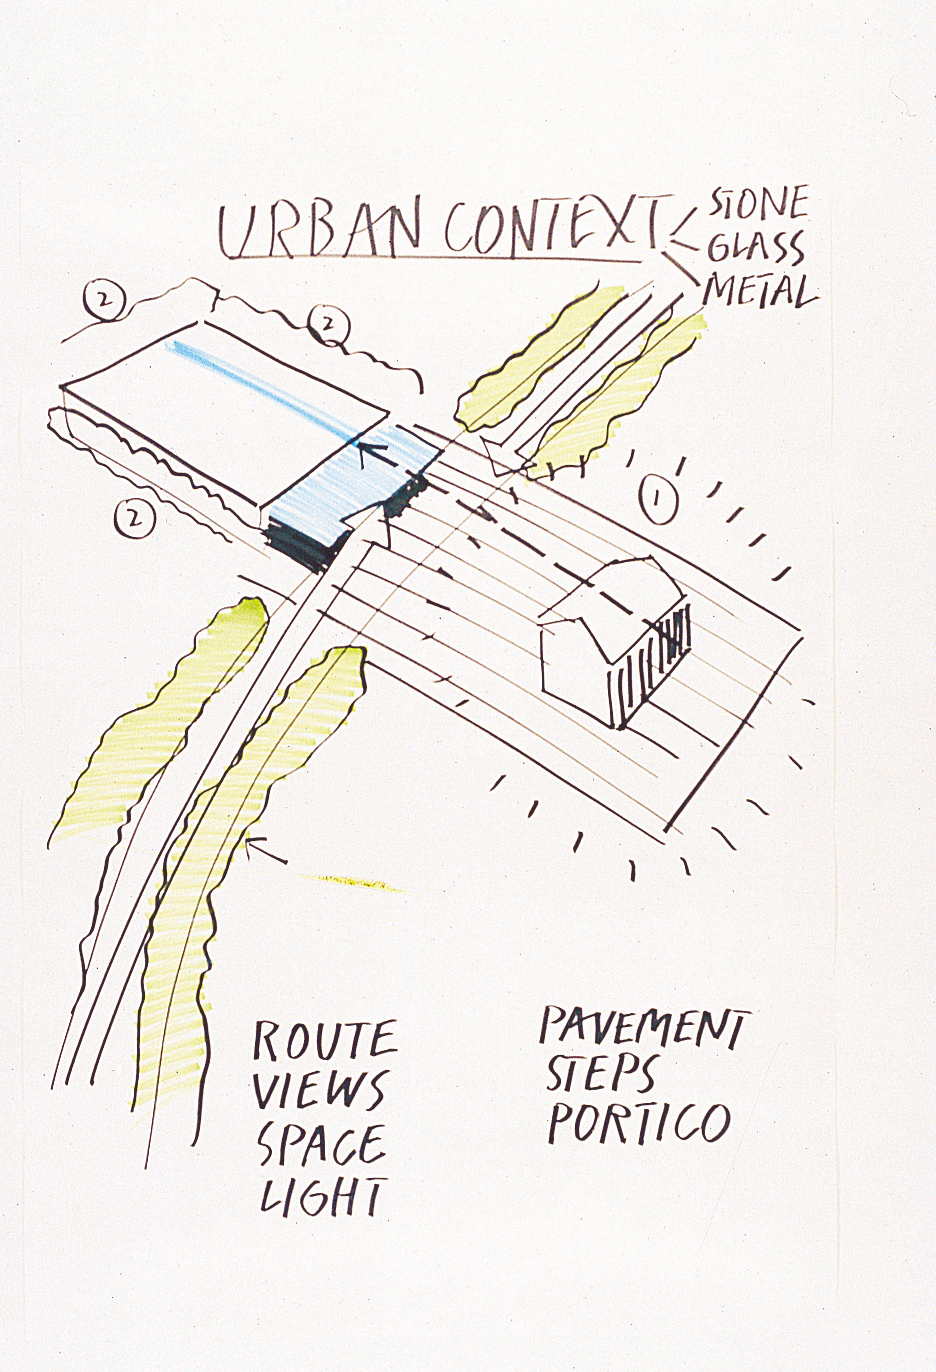 URBAN CONTEXT
STONE
GLASS
METAL
2
2
1
2
ROUTE
VIEWS
SPACE
LIGHT
PAVEMENT
STEPS
PORTICO